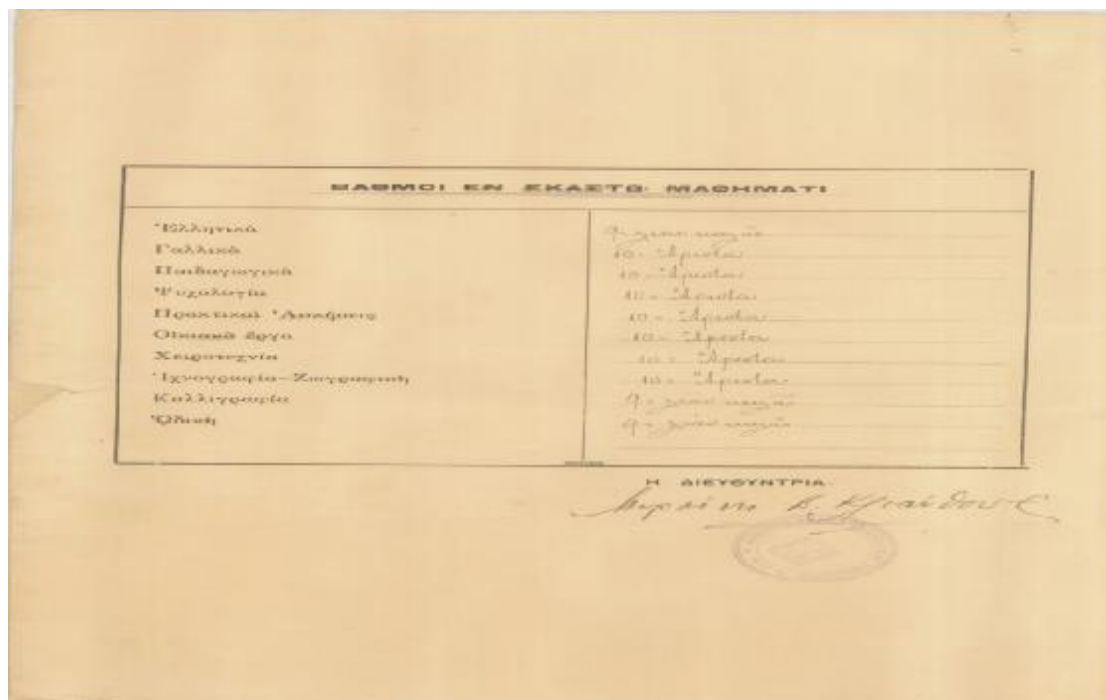 ΒΑΘΜΟΙ ΕΝ ΕΚΑΣΤΩ ΜΑΘΗΜΑΤΙ
Ἑλληνικά 9 = λίαν καλῶς
Γαλλικά 10 = Ἄριστα
Παιδαγωγικά 10 = Ἄριστα
Ψυχολογία 10 = Ἄριστα
Πρακτικαί Ἀσκήσεις 10 = Ἄριστα
Οἰκιακά ἔργα 10 = Ἄριστα
Χειροτεχνία 10 = Ἄριστα
Ἰχνογραφία–Ζωγραφική 10 = Ἄριστα
Καλλιγραφία 9 = λίαν καλῶς
Ὠδική 9 = λίαν καλῶς
Η ΔΙΕΥΘΥΝΤΡΙΑ